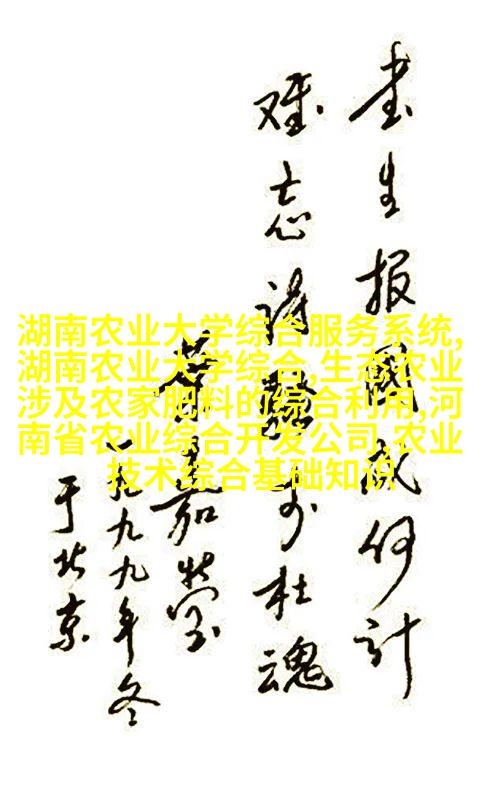 書生报國成何計
难忘诗骚李杜魂
葉嘉莹
一九九九年冬
于北京
湖南农业大学综合服务系统,
湖南农业大学综合,生态农业
涉及农家肥料的综合利用,河
南省农业综合开发公司,农业
技术综合基础知识